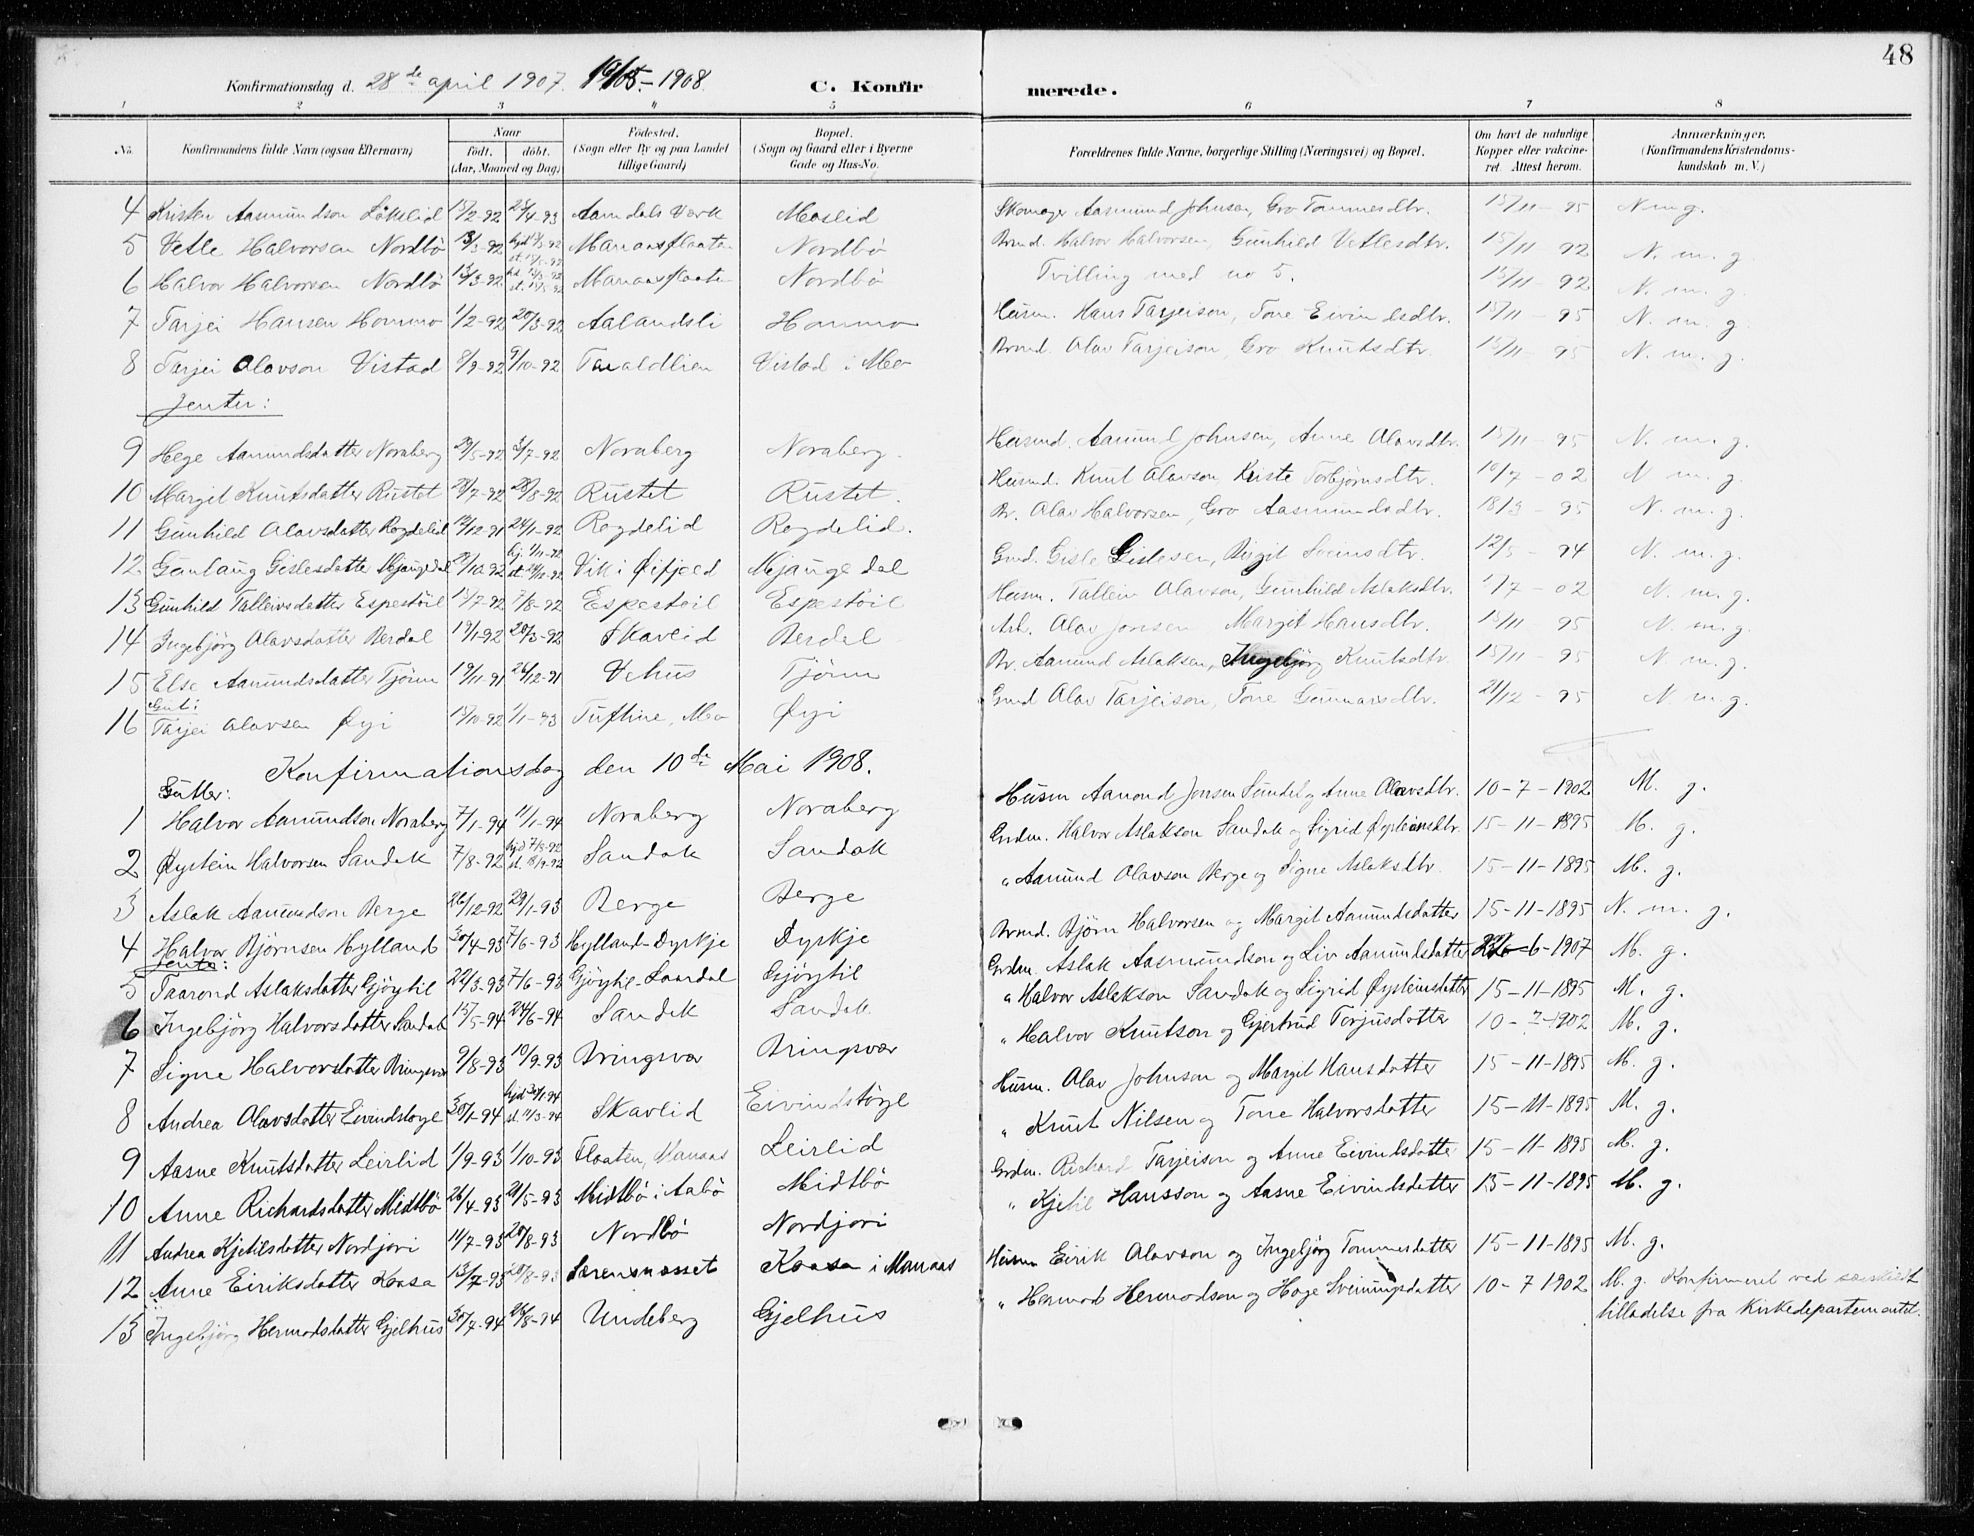 48
Konfirmationsdag d. 28de april 1907. 10/05-1908. C. Konfirmerede.
1 2 3 4 5 6 7 8
No. Konfirmandens fulde Navn (ogsaa Efternavn) Naar födt. döbt. (Aar, Maaned og Dag) Födested. (Sogn eller By og paa Landet tillige Gaard) Bopæl. (Sogn og Gaard eller i Byerne Gade og Hus-No. Forældrenes fulde Navne, borgerlige Stilling (Næringsvei) og Bopæl. Om havt de naturlige Kopper eller vakcineret. Attest herom. Anmærkninger. (Konfirmandens Kristendomskundskab m. V.)
4 Kristen Aasmundson Lökslid 15/2-92 Aamdals Værk Moslid Skomager Aasmund Johnsen, Gro Tommesdtr. 15/11-95 N m g.
5 Vetle Halvorsen Nordbö 13/3-92 Manaasflaaten Nordbö Brud. Halvor Halvorsen, Gunhild Vetlesdtr. 15/11 92 N. m. g.
6 Halvor Halvorsen Nordbö 13/3-92 Manaasflaaten Nordbö Tvilling med no 5. 15/11-92 N. m. g.
7 Tarjei Hansen Hommo 1/2-92 20/3-92 Aalandsli Hommo Husm. Hans Tarjeison, Tone Eivindsdtr. 15/11-95 N. m. g.
8 Tarjei Olavson Vistad 8/9-92 9/10-92 Taraldlien Vistad i Mo Brud. Olav Tarjeison, Gro Knutsdtr. 15/11 95 N. m. g.
Jenter:
9 Hege Aamundsdatter Noraberg 29/5-92 3/7-92 Noraberg Noraberg. Husmd. Aamund Johnsen, Anne Olavsdtr. 15/11-95 N. m. g.
10 Margit Knutsdatter Rustet 28/8-92 Rustet Rustet. Husmd. Knut Olavson, Kriste Torbjörnsdtr. 10/7-02 N m g.
11 Gunhild Olavsdatter Rogdelid 24/1-92 Rogdelid Rogdelid. Br. Olav Halvorsen, Gro Aasmundsdtr. 18/3-95 N. m. g.
12 Gunlaug Gislesdatter Mjaugedal Vik i Öifjeld Mjaugedal Grd. Gisle Gislesen, Birgit Sveinsdtr. 12/5-94 N. m. g.
13 Gunhild Talleivsdatter Espestöil 15/7-92 7/8-92 Espestöil Espestöil Husm. Talleiv Olavson, Gunhild Aslaksdtr. N. m. g.
14 Ingebjörg Olavsdatter Berdal 19/1-92 20/3-92 Skavlid Berdal Arb. Olav Jonsen Margit Hansdtr. 15/11 95 N. m. g.
15 Else Aamundsdatter Tjönn 19/11-91 26/12-91 Vehus Tjönn Br. Aamund Aslaksen, Ingebjörg Knutsdtr. 15/11-95 N. m. g.
Gut:
16 Tarjei Olavsen Öyi 15/10-92 1/1-93 Tuftine, Mo Öyi Grd Olav Tarjeison, Tone Gunnarsdtr. 21/12-95 N. m. g.
Konfirmationsdag den 10de Mai 1908.
Gutter:
1 Halvor Aamundson Noraberg 7/1-94 11/1-94 Noraberg Noraberg Husm Aamond Jonsen Sundet og Anne Olavsdtr. 10-7-1902 M. g.
2 Öystein Halvorsen Sandok 7/8-92 Sandok Sandok Grdm. Halvor Aslakson Sandok og Sigrid Öysteinsdtr. 15-11-1895 M. g.
3 Aslak Aamundson Berge 26/12-92 29/1-93 Berge Berge " Aamund Olavson Berge og Signe Aslaksdtr. 15-11-1895 M. g.
4 Halvor Björnsen Hylland 30/4-93 7/6-93 Hylland-Dyrkje Dyrkje Brmd. Björn Halvorsen og Margit Aamundsdatter 15-11-1895 N. m. g.
Jente:
5 Taarond Aslaksdatter Gjöytil 22/3-93 7/6-93 Gjöytil-Laardal Gjöytil Grdm. Aslak Aasmundson og Liv Aamundsdatter 6-1907 M. g.
6 Ingebjörg Halvorsdatter Sandok 15/5-94 24/6-94 Sandok Sandok " Halvor Aslakson Sandok og Sigrid Öysteinsdatter 15-11-1895 M. g.
7 Signe Halvorsdatter Bringsvær 9/8-93 10/9-93 Bringsvær Bringsvær " Halvor Knutson og Gjertrud Torjusdatter 10-7-1902 M. g.
8 Andrea Olavsdatter Eivindstoge 30/1-94 Skavlid Eivindstöge Husm. Olav Johnson og Margit Hansdatter 15-11-1895 M. g.
9 Aasne Knutsdatter Leirlid 1/9-93 1/10-93 Flaaten, Manaas Leirlid " Knut Nilsen og Tone Halvorsdatter 15-11-1895 M. g.
10 Anne Richardsdatter Midtbö 26/4-93 21/5-93 Midtbö i Aabö Midtbö Grdm. Richard Tarjeison og Anne Eivindsdatter 15-11-1895 M. g.
11 Andrea Kjetilsdatter Nordjori 11/7-93 20/8-93 Nordbö Nordjori " Kjetil Hansson og Aasne Eivindsdatter 15-11-1895 M. g.
12 Anne Eiriksdatter Kaasa 13/7-93 20/8-93 Sörensmosset Kaasa i Manaas Husm Eirik Olavson og Ingebjörg Tommesdatter 15-11-1895 M. g.
13 Ingebjörg Hermodsdatter Gjelhus 30/7-94 26/8-94 Undeberg Gjelhus " Hermod Hermodson og Hæge Sveinungsdatter 10-7 1902 M. g. Konfirmeret ved særskildt tilladelse fra Kirkedepartementet.